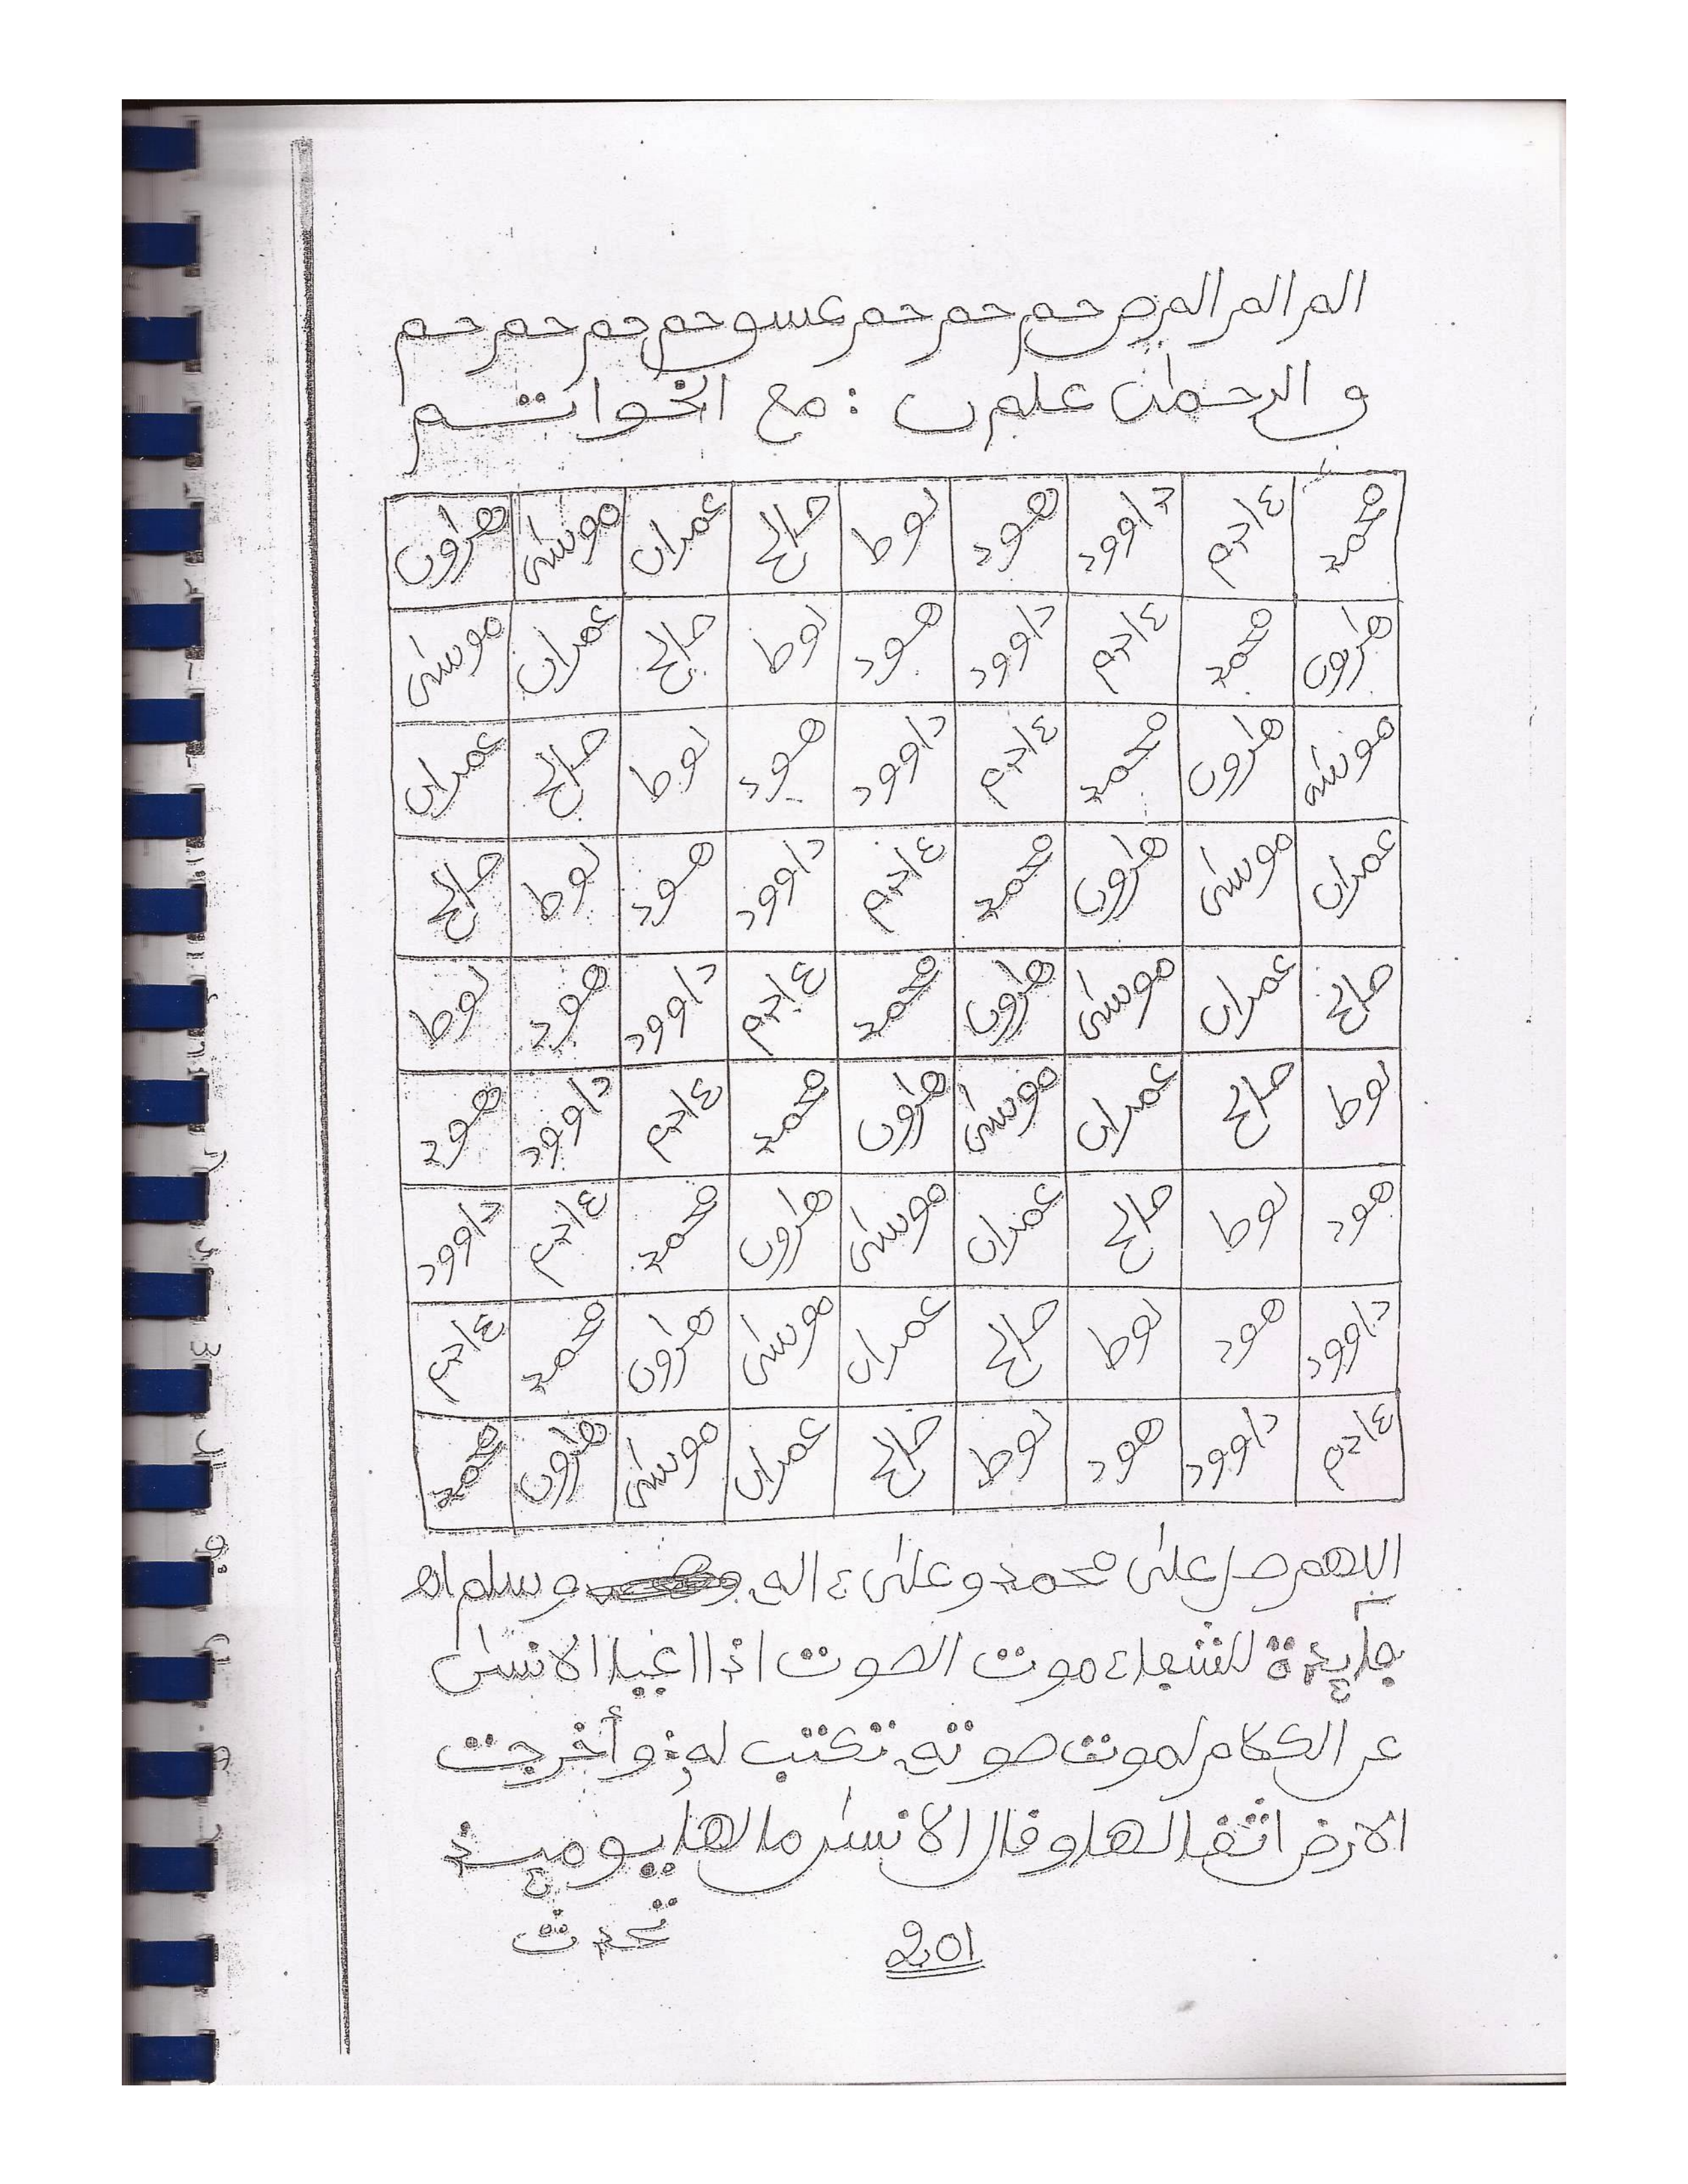 الم الم المص حم حم حم عسو حم حم حم حم حم
و الرحمٰن علم ن : مع الخواتم
محمد ءادم داوود هود لوط صالح عمران موسىٰ هٰرون
هٰرون محمد ءادم داوود هود لوط صالح عمران موسىٰ
موسىٰ هٰرون محمد ءادم داوود هود لوط صالح عمران
عمران موسىٰ هٰرون محمد ءادم داوود هود لوط صالح
صالح عمران موسىٰ هٰرون محمد ءادم داوود هود لوط
لوط صالح عمران موسىٰ هٰرون محمد ءادم داوود هود
هود لوط صالح عمران موسىٰ هٰرون محمد ءادم داوود
داوود هود لوط صالح عمران موسىٰ هٰرون محمد ءادم
ءادم داوود هود لوط صالح عمران موسىٰ هٰرون محمد
اللهم صل علىٰ محمد وعلىٰ ءاله وسلم اه
جايدة للشفاء موت الصوت اذا اعيا الانسٰن
عن الكلام لموت صوته تكتب له : وأخرجت
الارض اثقالها وقال الانسٰن ما لها يومئذ
تحدث
201